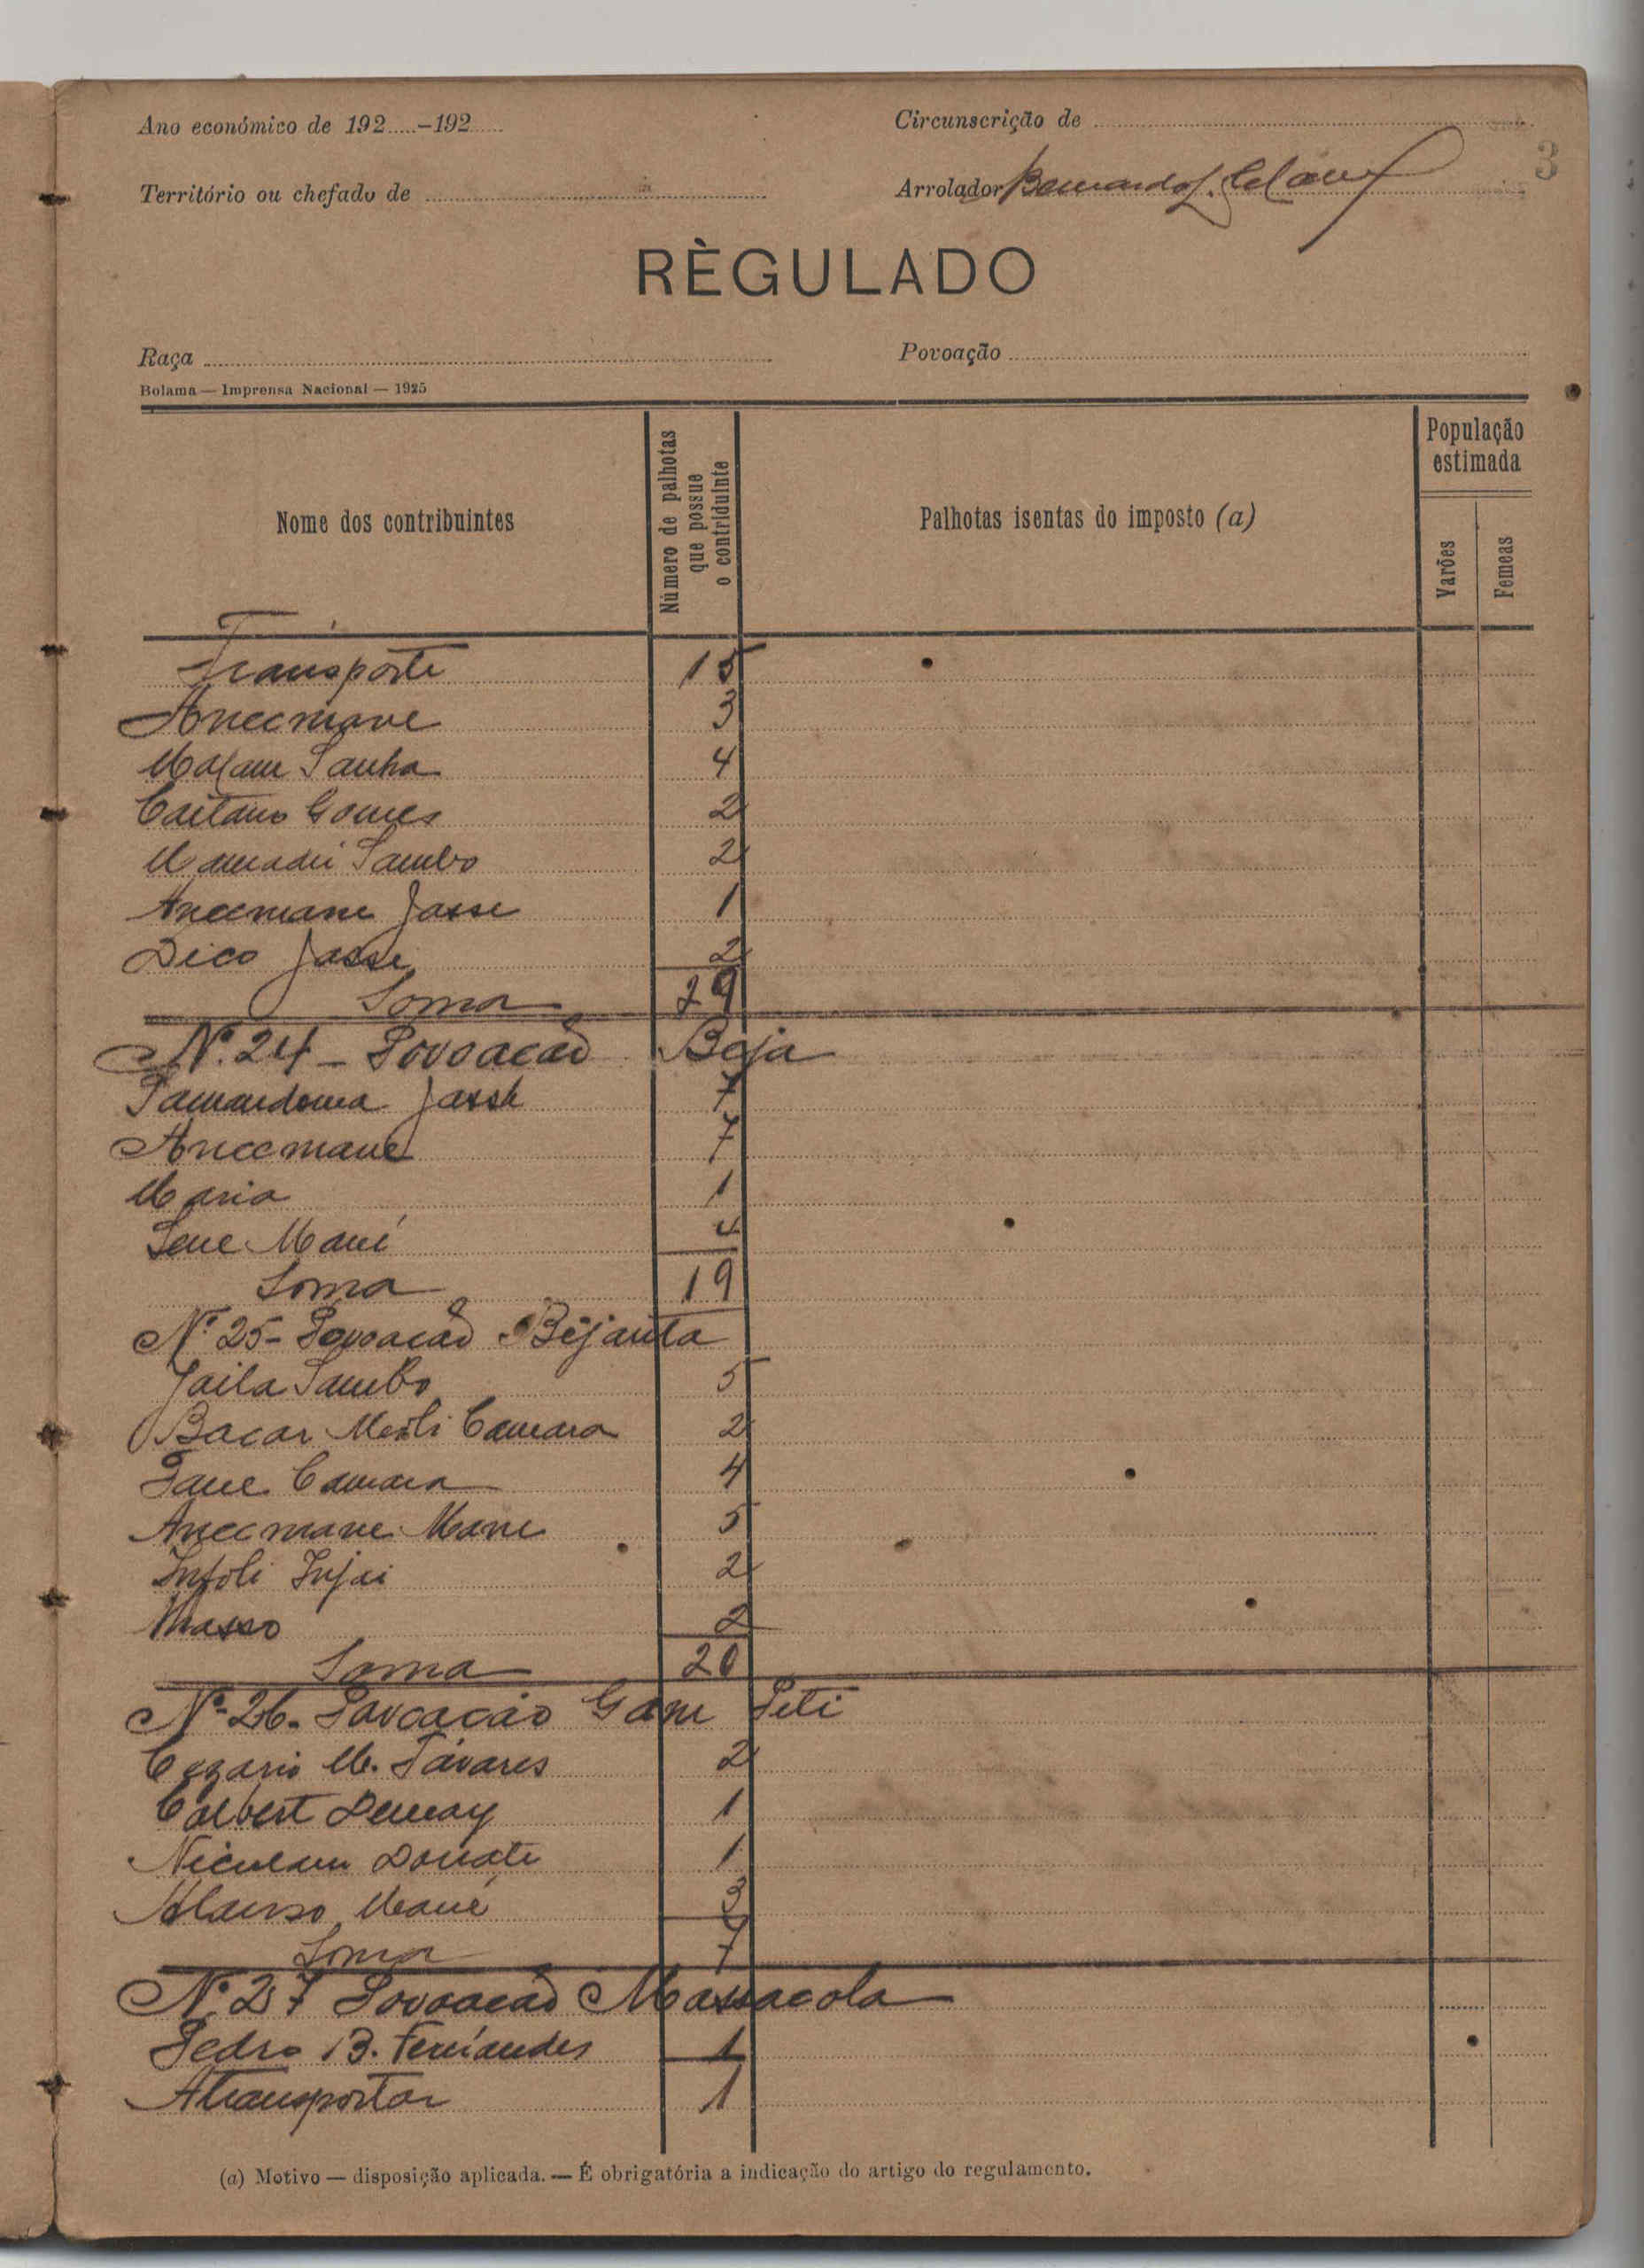 Ano económico de 192.....-192.....
Circunscrição de
3
Território ou chefado de
Arrolador Bernardo
RÈGULADO
Raça
Povoação
Bolama — Imprensa Nacional — 1925
Nome dos contribuintes
Número de palhotas que possue o contriduinte
Palhotas isentas do imposto (a)
População estimada
Varões
Femeas
Transporte 15
Anecmane 3
Malam Sanha 4
Caetano Gomes 2
Mamadú Sambo 2
Anecmane Jasse 1
Dico Jasse 2
Soma 29
Nº 24 - Povoacão Beja
Jassh 7
Anecmane 7
Maria 1
Sene Mané 4
Soma 19
Nº 25- Povoacão Bijanta
Jaila Sambo 5
Bacar Camara 2
Camara 4
Anecmane Mane 5
Infoli Injai 2
Masso 2
Soma 20
Nº 26- Povoacão Gam Peti
Cezario M. Tavares 2
Calvert 1
Donate 1
Mané 3
Soma 7
Nº 27 Povoacão Massacola
Pedro B. Fernandes 1
A transportar 1
(a) Motivo — disposição aplicada. — É obrigatória a indicação do artigo do regulamento.